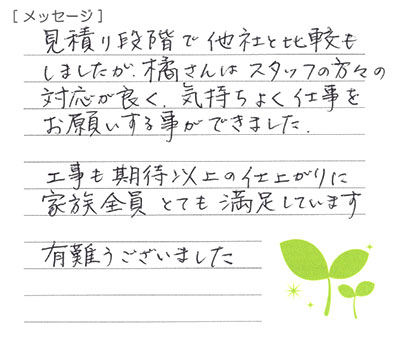 [メッセージ]
見積り段階で他社と比較も
しましたが、橘さんはスタッフの方々の
対応が良く、気持ちよく仕事を
お願いする事ができました.
工事も期待以上の仕上がりに
家族全員とても満足しています
有難うございました